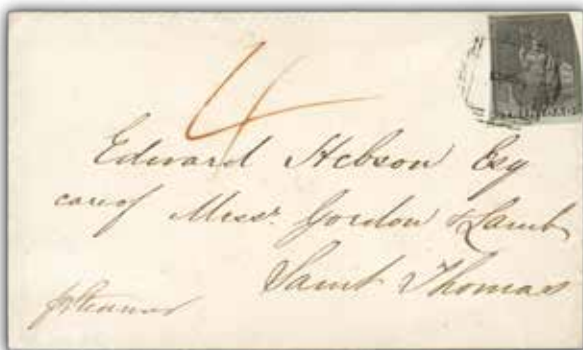 4
Edward Hobson Esq
care of Messrs Gordon & Lamb
Saint Thomas